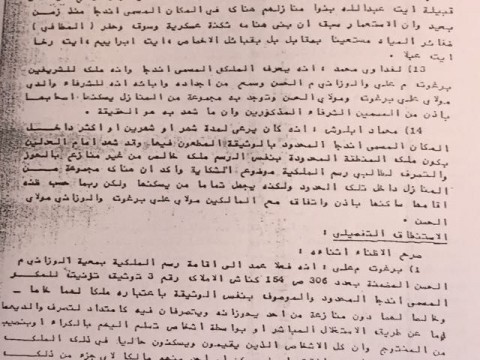 قبيلة ايت عبدالله بنوا منازلهم هناك في المكان المسمى اندجا منذ زمن
بعيد وان الاستعمار سبق ان بنى هنامه ثكنة عسكرية وسوقه وحفر (المطافي)
المياه مستعينا بمقابل بل بقبائل الاخصاص ايت ابراهيم ايت رخا
ايت
13) لغداوي محمد : انه يعرف الملكي المسمى اندجا وانه ملكا للشريفين
برغوت م علي والوزاني م الحسن وسمع من اجداده وابائه انه للشرفاء والدي
مولاي علي برغوت ومولاي الحسن وتوجد به مجموعة من المنازل يسكنها اصحابها
باذن من المسمين الشرفاء المذكورين وان ما شهد به هو الحقيقة .
14) محماد ابلوش : انه كان يرعى لمدة شهر او شهرين او اكثر داخل
المكان المسمى اندجا المحدود بالوثيقة المطعون فيها وقد شهد امام العدلين
بكون ملك المنطقة المحدودة بنفس الرسم ملك خالص من غير منازع بالحوز
والتصرف لطالبي رسم الملكية موضوع الشكاية واكد ان هناك مجموعة من
المنازل داخل تلك الحدود ولكنه يجهل تماما من يسكنها ولكن ربما حسب قتده
اقامها ساكنها باذن واتفاق مع المالكين مولاي علي برغوت والوزاني مولاي
الحسن .
الاستنطاق التفصيلي :
صرح الاظناء اثناءه :
1) برغوت م علي : انه فعلا عمد الى اقامة رسم الملكية بمعية الوزاني م
الحسن المضمنة بعدد 306 ص 154 كناش الاملاك رقم 3 توثيق تزنيت للمكان
المسمى اندجا المحدود والموصوف بنفس الوثيقة باعتباره ملكا لهما خاصا
وخالصا لهما دون منازعة من احد يحوزانه ويتصرفان فيه كامتداد لتصرف والديهما
لهما عن طريق الاستغلال المباشر او بواسطة اشخاص تسلم اليهم بالكراء او بنصيب
من المنتوج وان كل الاشخاص الذين يقيمون ويسكنون حاليا في ذلك الملك
احد منهم مالكا لاي جزء من ذلك